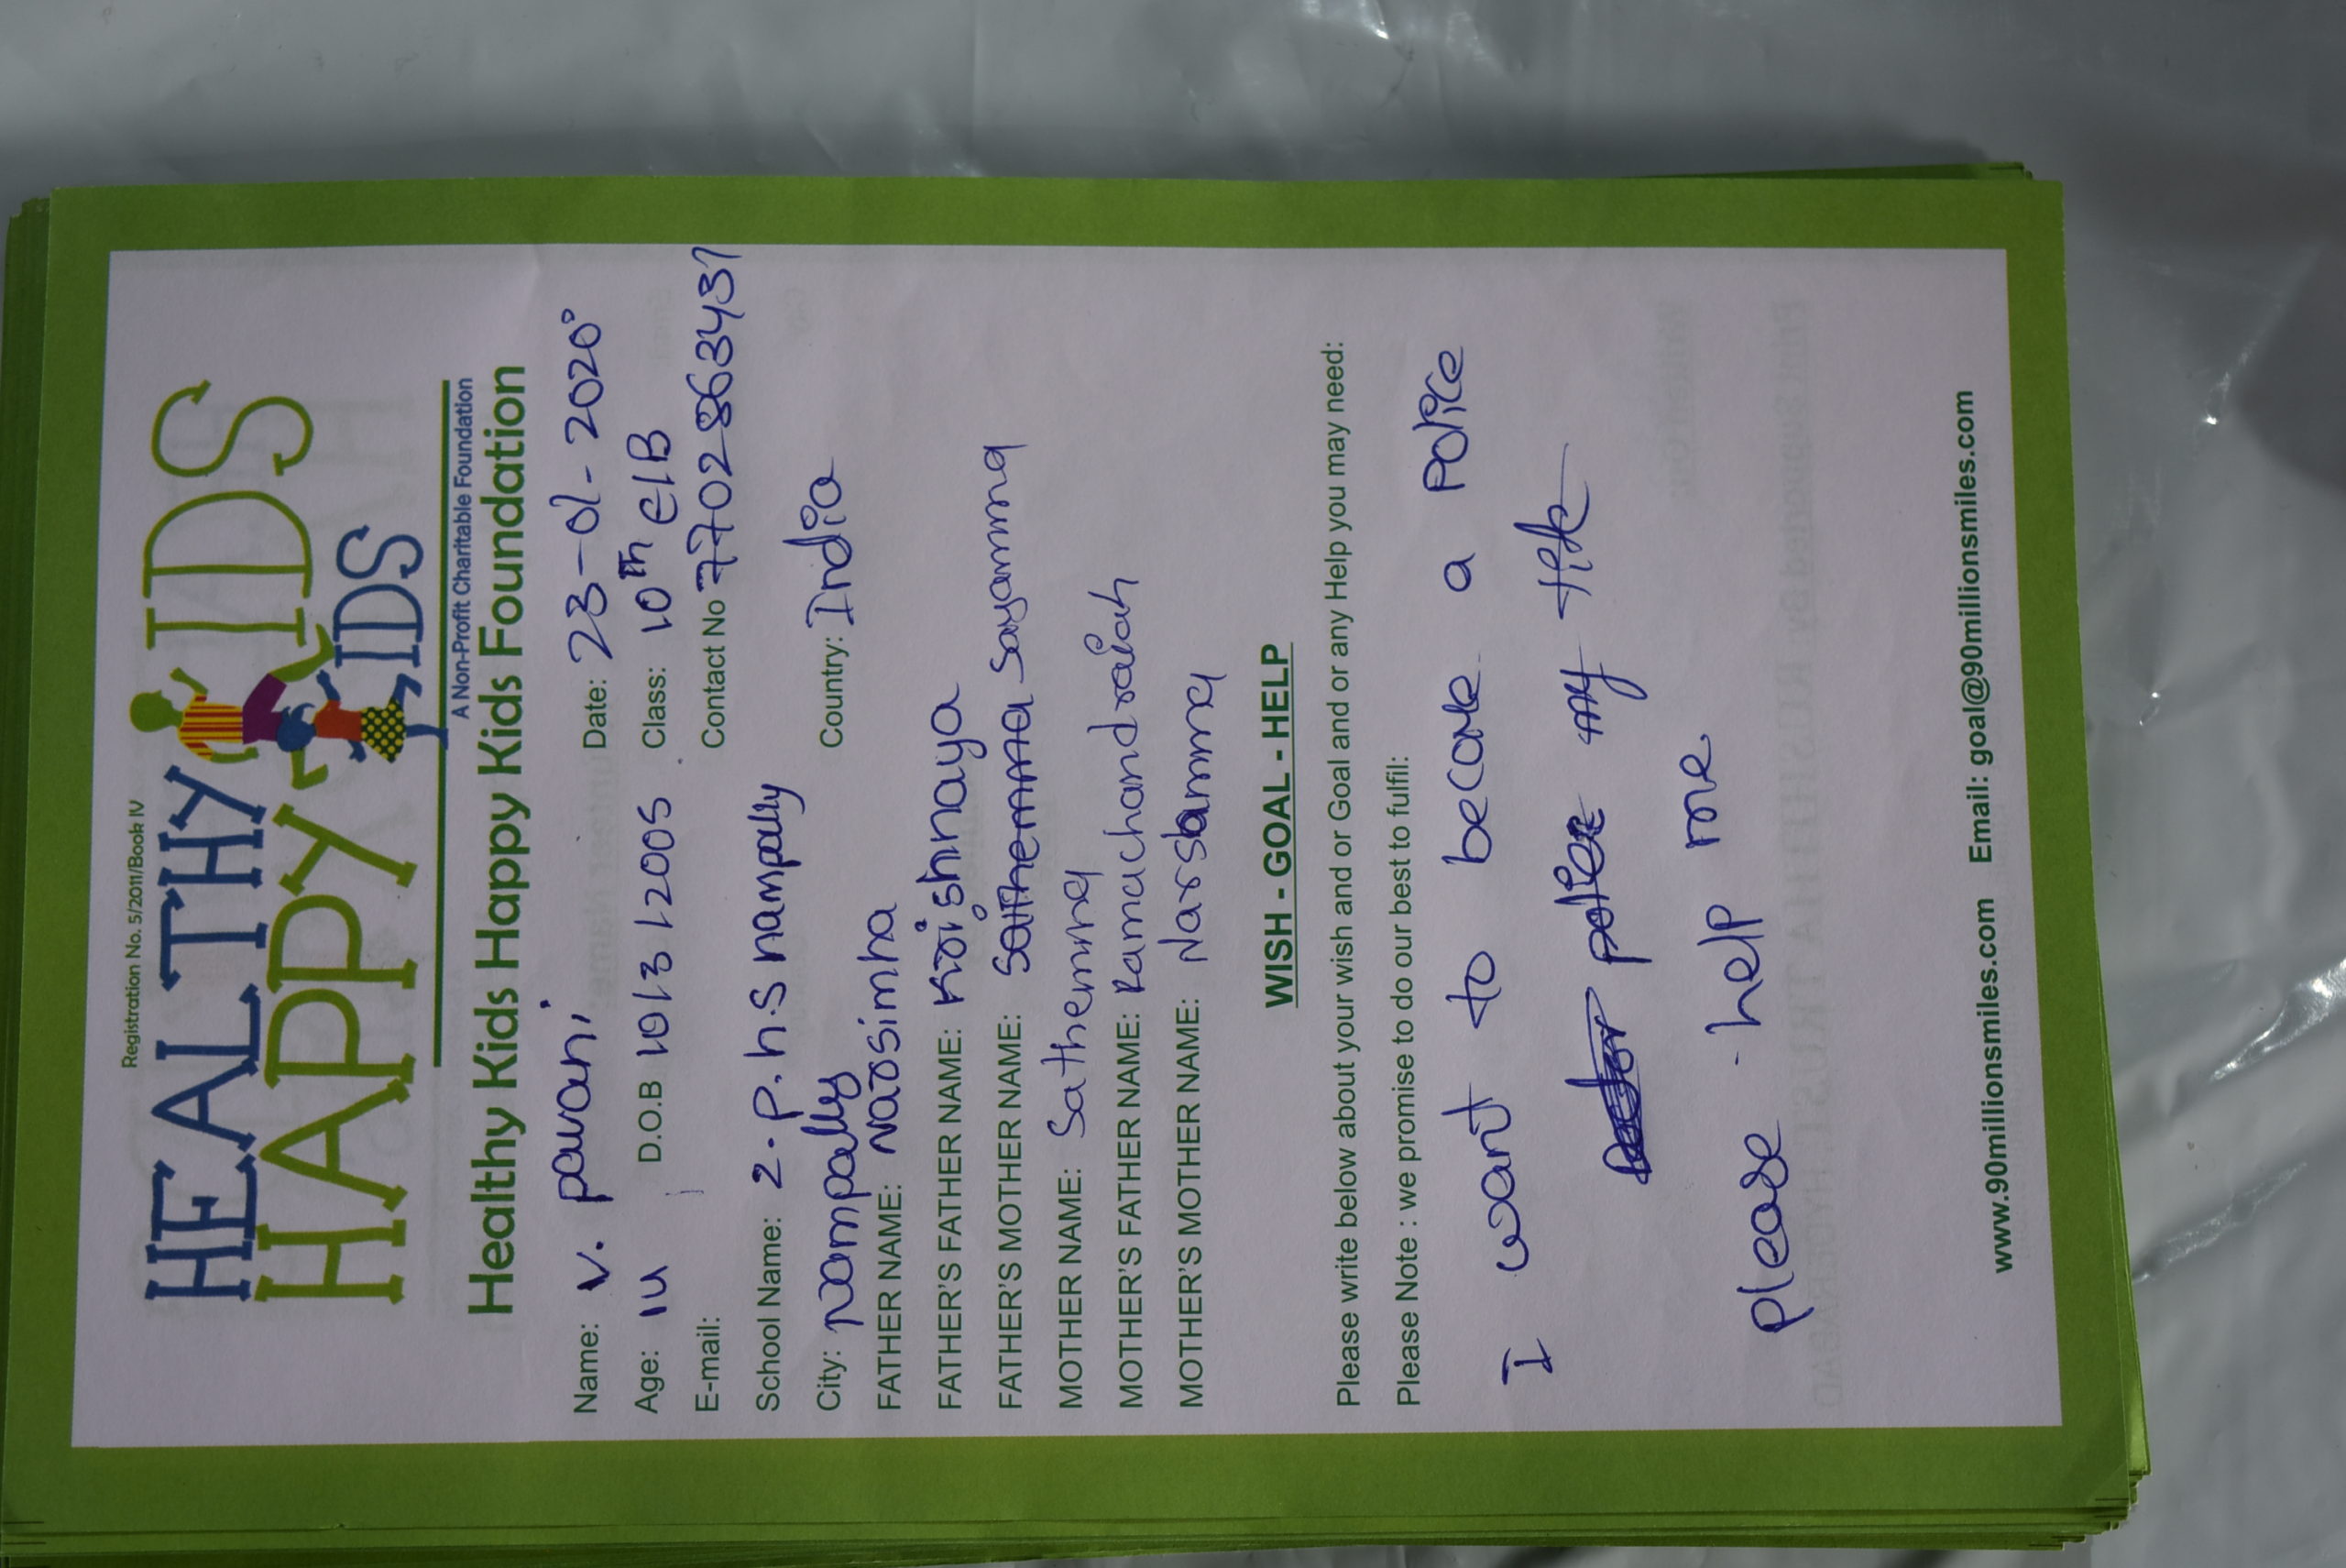 Registration No. 5/2011/Book IV
HEALTHY KIDS
HAPPY KIDS
A Non-Profit Charitable Foundation
Healthy Kids Happy Kids Foundation
Name: V. pavani Date: 23-01-2020
Age: 14 D.O.B 10/3/2005 Class: 10th C/B
E-mail: Contact No 7702863431
School Name: 2. P. h. S nampally
City: nampally Country: India
FATHER NAME: Narsimha
FATHER'S FATHER NAME: Krishnaya
FATHER'S MOTHER NAME: Sathemma Sayamma
MOTHER NAME: Sathemma
MOTHER'S FATHER NAME: Ramachandraiah
MOTHER'S MOTHER NAME: Narsamma
WISH - GOAL - HELP
Please write below about your wish and or Goal and or any Help you may need:
Please Note : we promise to do our best to fulfil:
I want to become a police
police my life
please help me
www.90millionsmiles.com Email: goal@90millionsmiles.com